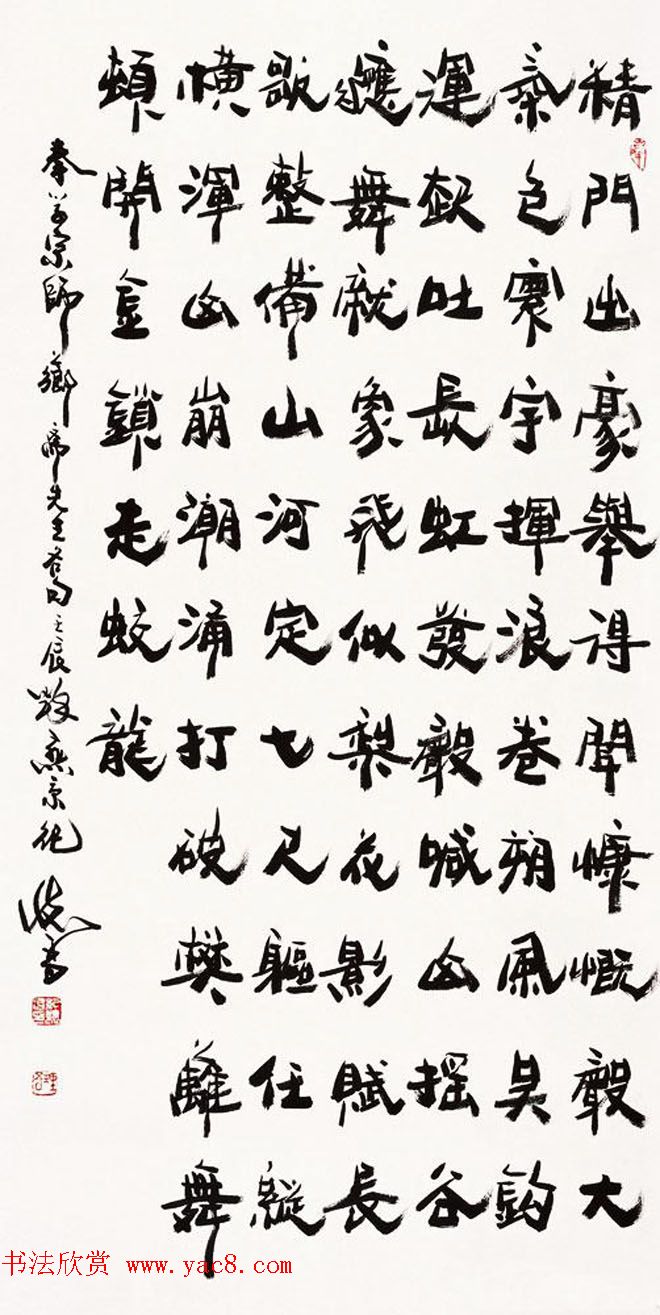 精門出豪舉得聞慷慨聲大
氣色寰宇揮浪卷朔風吴鈎
運吐長虹發聲喊山搖谷
應舞就象飛似梨花影賦長
歌整備山河定七尺軀任縱
橫渾山崩潮涌打破樊離舞
頓開金鎖走蛟龍
宗師鄉先生壬辰京
书法欣赏 www.yac8.com